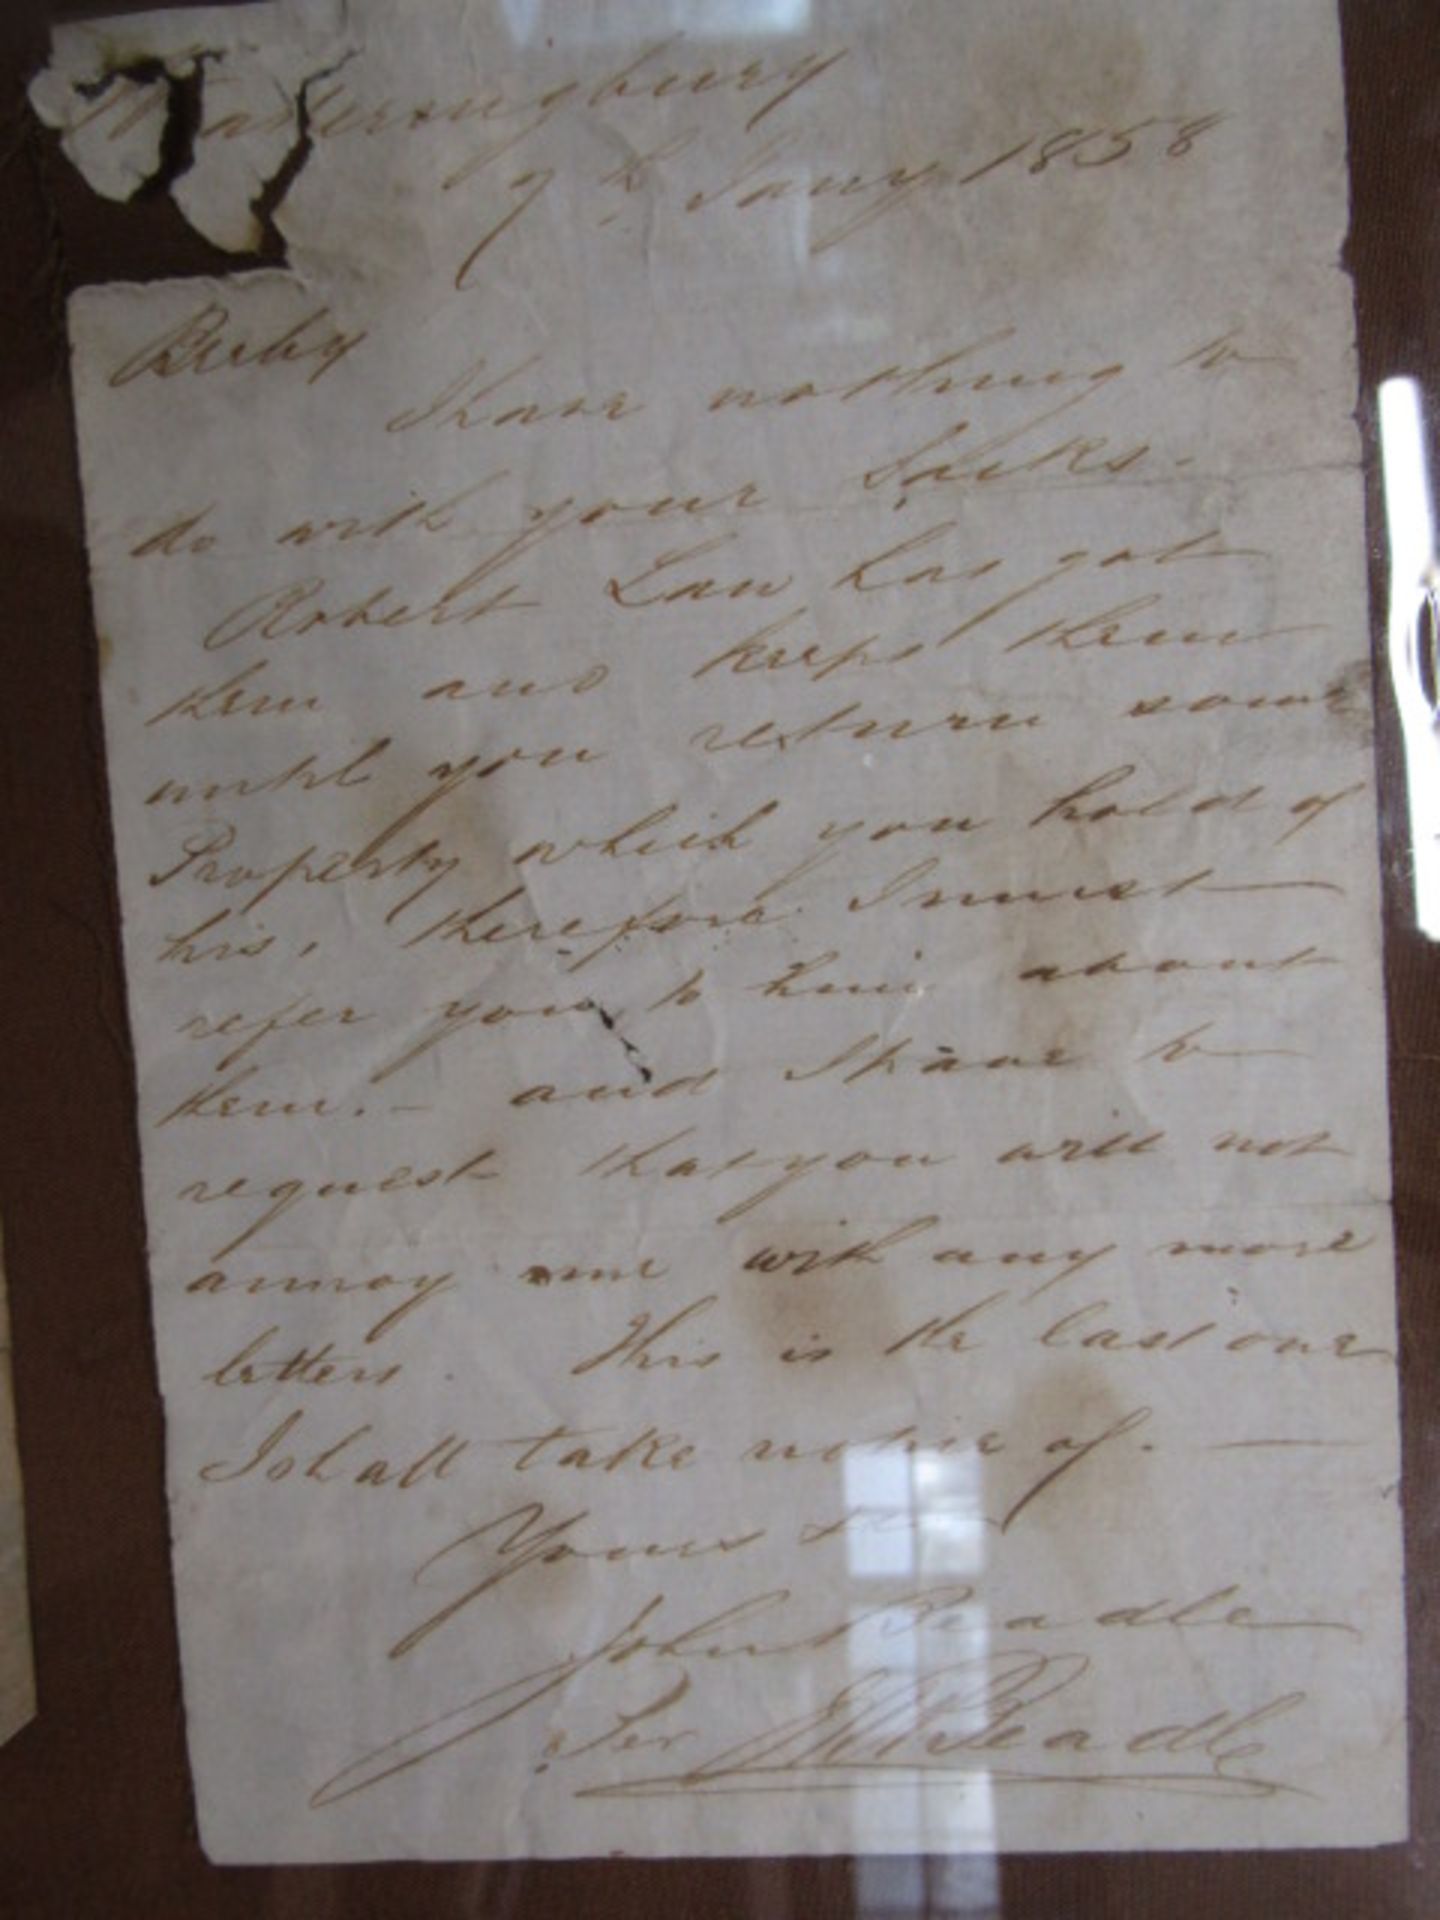 Wateringbury
9th Jany 1858
I have nothing to
do with your Sacks.
Robert Law has got
them and keeps them
until you return some
Property which you hold of
his, therefore I must
refer you to him about
them. - and I have to
request that you will not
annoy me with any more
letters. This is the last one
I shall take notice of. —
Yours
John Beadle
Per Beadle